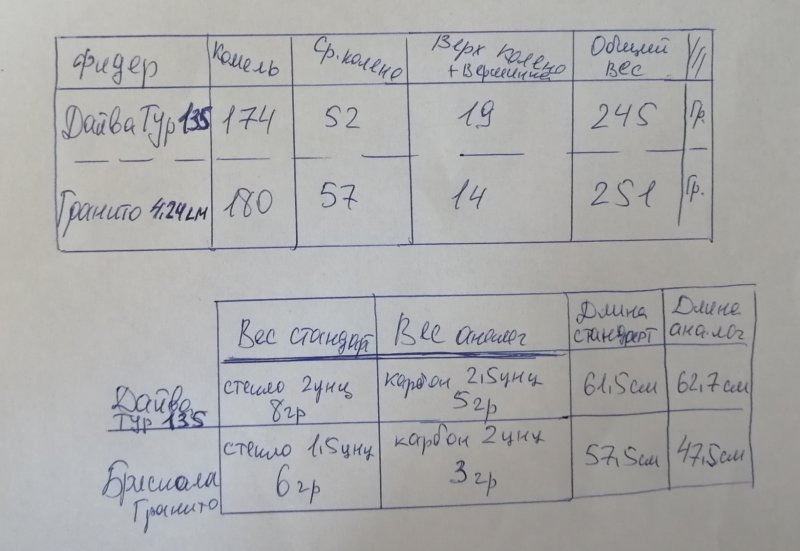 Фидер Комель Ср.колено Верх колено + Вершинка Общий вес
Дайва Тур 135 174 52 19 245 Гр.
Гранито 4.24см 180 57 14 251 Гр.
Вес стандарт Вес аналог Длина стандарт Длина аналог
Дайва Тур 135 стекло 2унц 8гр карбон 2,5унц 5гр 61,5см 62,7см
Брисиола Гранито стекло 1,5унц 6гр карбон 2унц 3гр 57,5см 47,5см